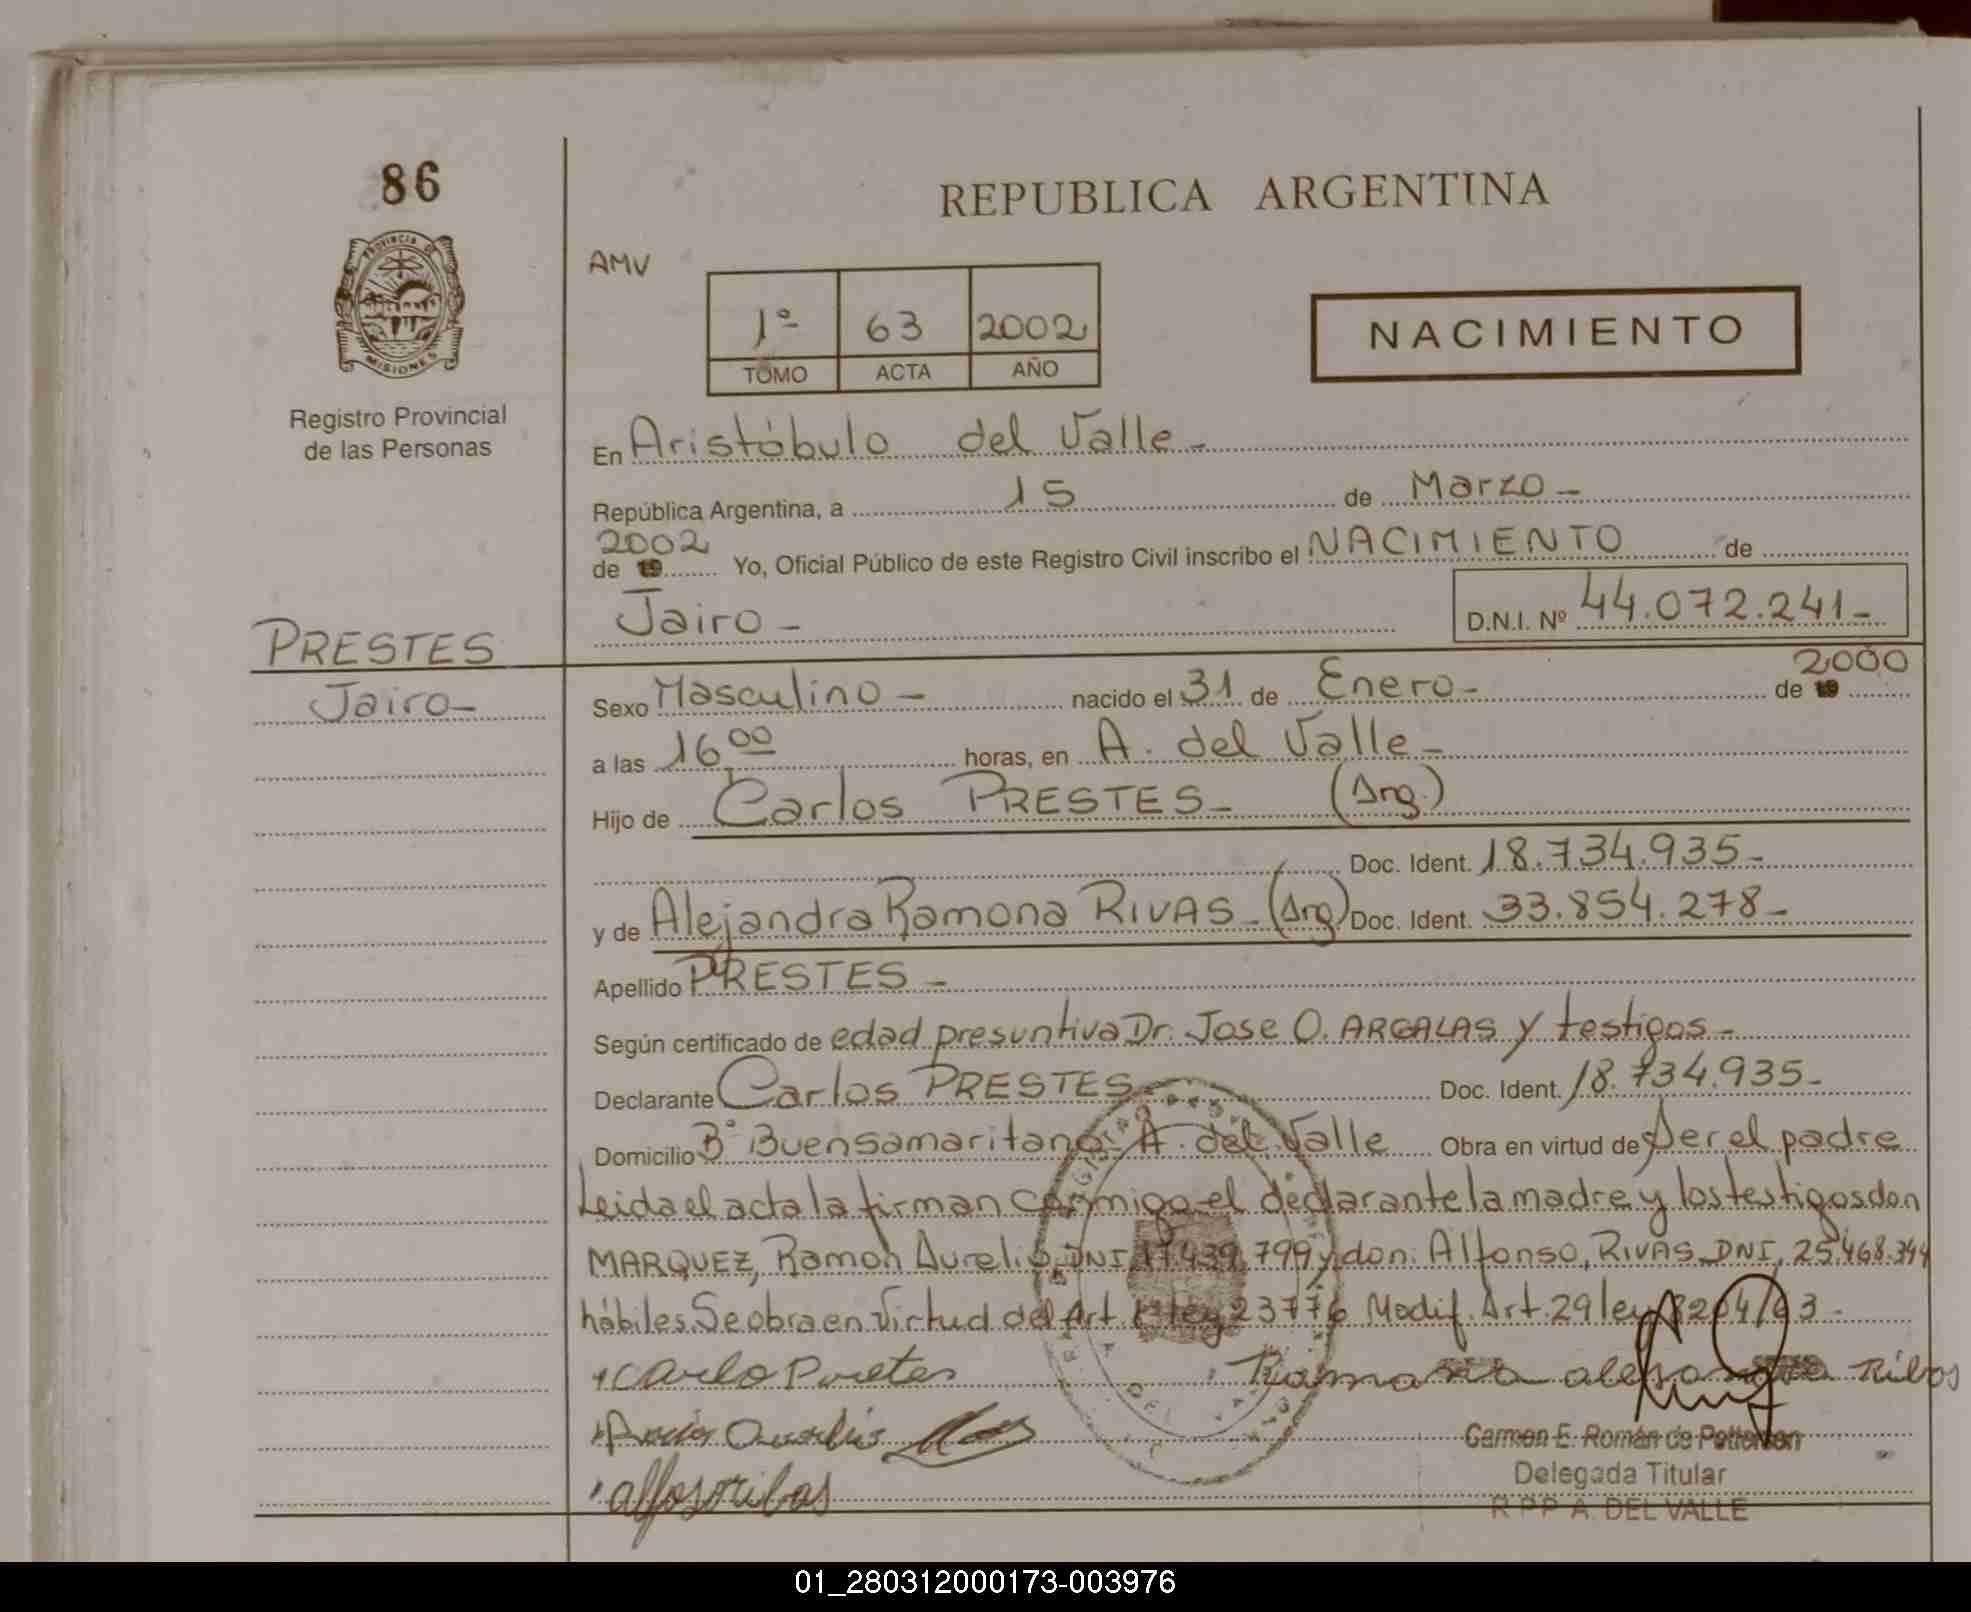 86
PROVINCIA DE
MISIONES
Registro Provincial
de las Personas
PRESTES
Jairo-
REPUBLICA ARGENTINA
AMV
1º 63 2002
TOMO ACTA AÑO
NACIMIENTO
En Aristóbulo del Valle-
República Argentina, a 15 de Marzo-
2002
de 19 Yo, Oficial Público de este Registro Civil inscribo el NACIMIENTO de
Jairo- D.N.I. Nº 44.072.241-
Sexo Masculino- nacido el 31 de Enero- de 19 2000
a las 16 00 horas, en A. del Valle-
Hijo de Carlos PRESTES- (Arg.)
Doc. Ident. 18.734.935-
y de Alejandra Ramona RIVAS-(Arg) Doc. Ident. 33.854.278-
Apellido PRESTES-
Según certificado de edad presuntiva Dr. Jose O. ARGALAS y testigos-
Declarante Carlos PRESTES- Doc. Ident. 18.734.935-
Domicilio Bº Buensamaritano- A. del Valle Obra en virtud de Ser el padre
Leida el acta la firman conmigo el declarante la madre y los testigos don
MARQUEZ, Ramon Aurelio DNI 17.439.799 y don: Alfonso, RIVAS DNI, 25.468.344
hábiles. Se obra en virtud del Art. ley 23776 Modif. Art. 29 ley 8204/63-
Carlo Pretes Ramona Ribos
Aurelio
alfoso ribas
Carmen E. Román de Petterson
Delegada Titular
R P P A. DEL VALLE
01_280312000173-003976